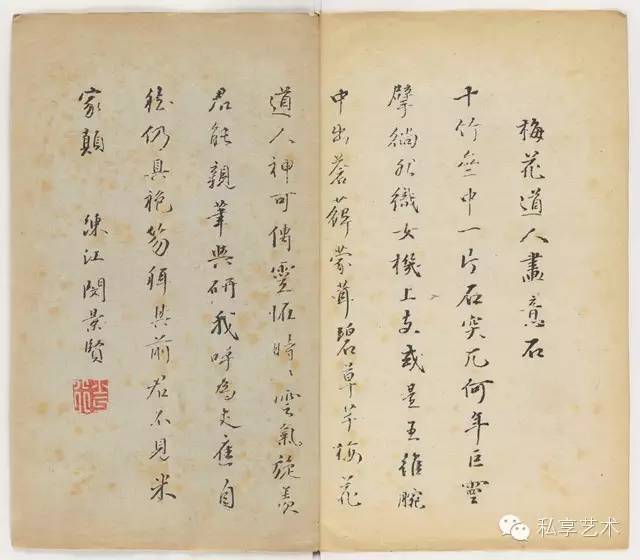 梅花道人畫意石
十竹齋中一片石突兀何年巨靈
擘徜然織女機上支或是王維腕
中出蒼蘚蒙茸碧草芊梅花
道人神可傳靈怪時〻雲氣旋羨
君能親筆與研我呼為丈應自
仍具袍笏拜其前君不見米
家顛 練江閔景賢
私享艺术